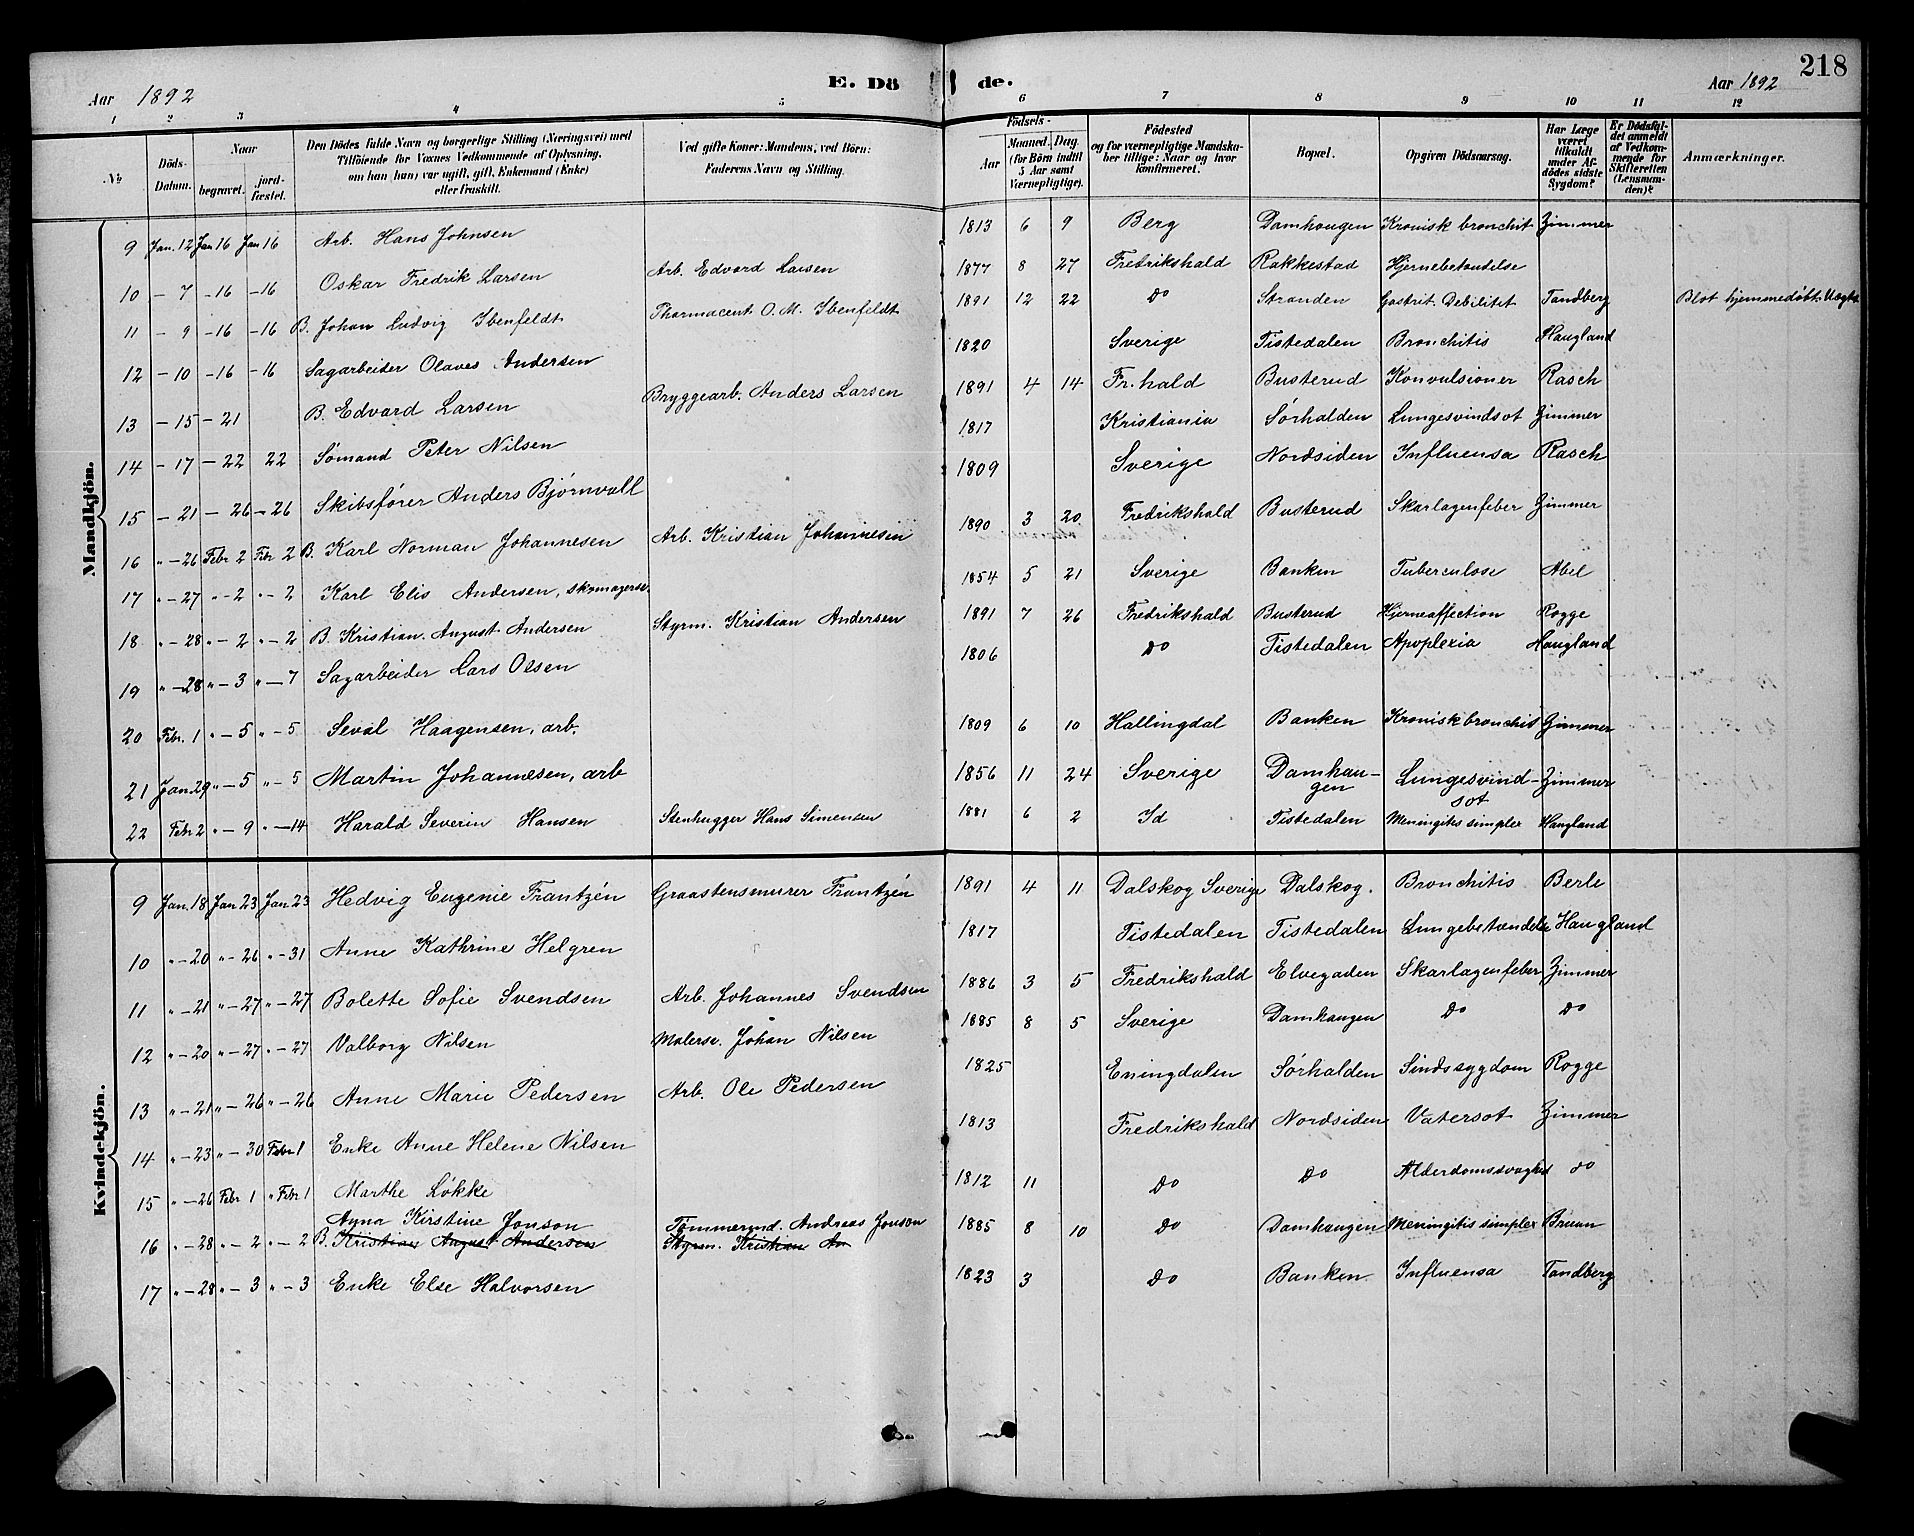 218
Aar 1892 E. Dö de. Aar 1892
1 2 3 4 5 6 7 8 9 10 11 12
№ Döds-Datum. Naar begravet. jordfæstet. Den Dödes fulde Navn og borgerlige Stilling (Næringsvei) med Tilföiende for Voxnes Vedkommende af Oplysning, om han (hun) var ugift, gift, Enkemand (Enke) eller fraskilt. Ved gifte Koner: Mandens, ved Börn: Faderens Navn og Stilling. Födsels- Aar Maaned, Dag (for Börn indtil 5 Aar samt Værnepligtige). Födested og for værnepligtige Mandskaber tillige: Naar og hvor konfirmeret. Bopæl. Opgiven Dödsaarsag. Har Læge været tilkaldt under Afdödes sidste Sygdom? Er Dödsfaldet anmeldt af Vedkommende for Skifteretten (Lensmanden)? Anmærkninger.
Mandkjön.
9 Jan. 12 Jan 16 Jan 16 Arb. Hans Johnsen 1813 6 9 Berg Damhaugen Kronisk bronchit Zimmer
10 - 7 - 16 - 16 Oskar Fredrik Larsen Arb. Edvard Larsen 1877 8 27 Fredrikshald Rakkestad Hjernebetændelse
11 - 9 - 16 - 16 B. Johan Ludvig Ibenfeldt Pharmaceut O. M. Ibenfeldt 1891 12 22 Do Stranden Gastrit. Debilitet Tandberg Blot hjemmedøbt
12 - 10 - 16 - 16 Sagarbeider Olaves Andersen 1820 Sverige Tistedalen Bronchitis Haugland
13 - 15 - 21 B. Edvard Larsen Bryggearb. Anders Larsen 1891 4 14 Fr.hald Busterud Konvulsioner Rasch
14 - 17 - 22 22 Sømand Peter Nilsen 1817 Kristiania Sørhalden Lungesvindsot Zimmer
15 - 21 - 26 - 26 Skibsfører Anders Bjørnvall 1809 Sverige Nordsiden Influensa Rasch
16 " - 26 Febr 2 Febr 2 B. Karl Norman Johannesen Arb. Kristian Johannesen 1890 3 20 Fredrikshald Busterud Skarlagenfeber Zimmer
17 " - 27 " - 2 " - 2 Karl Elis Andersen, skomagersv. 1854 5 21 Sverige Banken Tuberculose Abel
18 " - 28 " - 2 " - 2 B. Kristian August Andersen Styrm. Kristian Andersen 1891 7 26 Fredrikshald Busterud Hjerneaffection Rogge
19 " - 28 " - 3 " - 7 Sagarbeider Lars Olsen 1806 Do Tistedalen Apoplexia Haugland
20 Febr. 1 " - 5 " - 5 Seval Haagensen, arb. 1809 6 10 Hallingdal Banken Kronisk bronchit Zimmer
21 Jan. 29 " - 5 " - 5 Martin Johannesen, arb 1856 11 24 Sverige Damhaugen Lungesvindsot Zimmer
22 Febr 2 " - 9 " - 14 Harald Severin Hansen Stenhugger Hans Simensen 1881 6 2 Id Tistedalen Meningitis simplex Haugland
Kvindekjön.
9 Jan. 18 Jan 23 Jan 23 Hedvig Eugenie Frantzén Graastensmurer Frantzén 1891 4 11 Dalskog Sverige Dalskog. Bronchitis Berle
10 " - 20 " - 26 " - 31 Anne Kathrine Helgren 1817 Tistedalen Tistedalen Lungebetændelse Haugland
11 " - 21 " - 27 " - 27 Bolette Sofie Svendsen Arb. Johannes Svendsen 1886 3 5 Fredrikshald Elvegaden Skarlagenfeber Zimmer
12 " - 20 " - 27 " - 27 Valborg Nilsen Malersv. Johan Nilsen 1885 8 5 Sverige Damhaugen Do Do
13 " - 21 " - 26 " - 26 Anne Marie Pedersen Arb. Ole Pedersen 1825 Eningdalen Sørhalden Sindssygdom Rogge
14 " - 23 " - 30 Febr 1 Enke Anne Helene Nilsen 1813 Fredrikshald Nordsiden Vatersot Zimmer
15 " - 26 Febr 1 " Febr 1 Marthe Løkke 1812 11 Do Do Alderdomssvaghed do
16 " - 28 " - 2 " - 2 Anna Kirstine Jonson Tømmermd. Andreas Jonson 1885 8 10 Do Damhaugen Meningitis simplex Bruun
B. Kristian August Andersen Styrm. Kristian An
17 " - 28 " - 3 " - 3 Enke Else Halvorsen 1823 3 Do Banken Influensa Tandberg